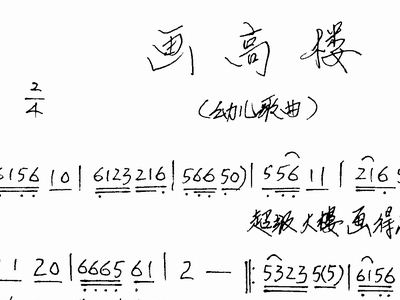 画高楼
2/4
(幼儿歌曲)
6156 10 | 6123 216 | 566 50) | 556 11 | 216
超级大楼画得
1 20 | 6665 61 | 2 — ‖: 5323 5(5) | 6156